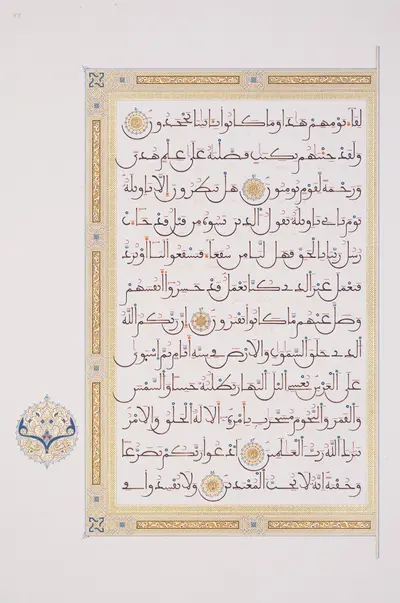 لقاء يومهم هذا وما كانوا بـايتنا يجحدون
ولقد جئنهم بكتب فصلنه على علم هدى
ورحمة لقوم يومنون هل ينظرون الا تاويله
يوم ياتي تاويله يقول الذين نسوه من قبل قد جاءت
رسل ربنا بالحق فهل لنا من شفعاء فيشفعوا لنا أو نرد
فنعمل غير الذي كنا نعمل قد خسروا أنفسهم
وضل عنهم ما كانوا يفترون ان ربكم الله
الذي خلق السموات والارض في ستة أيام ثم استوى
على العرش يغشي اليل النهار يطلبه حثيثا والشمس
والقمر والنجوم مسخرت بأمره ألا له الخلق والامر
تبرك الله رب العلمين ادعوا ربكم تضرعا
وخفية انه لا يحب المعتدين ولا تفسدوا في